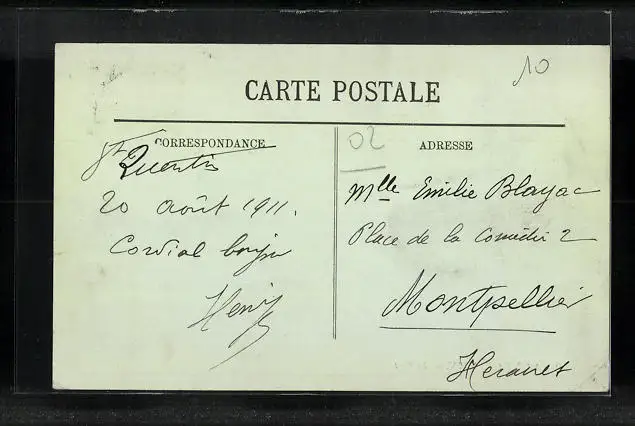 10
CARTE POSTALE
CORRESPONDANCE
02
ADRESSE
St Quentin
20 août 1911.
Cordial bonjour
Henry
Mlle Emilie Blayac
Place de la Comédie 2
Montpellier
Herault